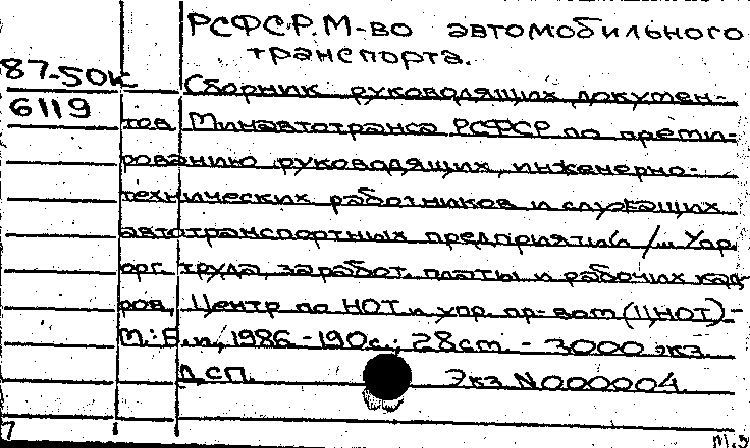 РСФСР. М-во автомобильного
транспорта.
87-50к
Сборник руководящих докумен-
6119
тов Минавтотранса РСФСР по преми-
рованию руководящих, инженерно-
технических работников и служащих
автотранспортных предприятий / Упр.
орг. труда, заработ. платы и рабочих кад-
ров, Центр по НОТ и упр. пр-вом (ЦНОТ).-
М.: Б.и., 1986 - 190с.; 28см. - 3000 экз.
ДСП. Экз N000004.
7